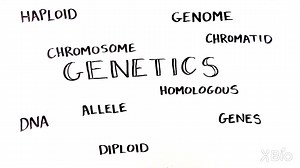 HAPLOID
GENOME
CHROMOSOME
CHROMATID
GENETICS
HOMOLOGOUS
ALLELE
DNA
GENES
DIPLOID